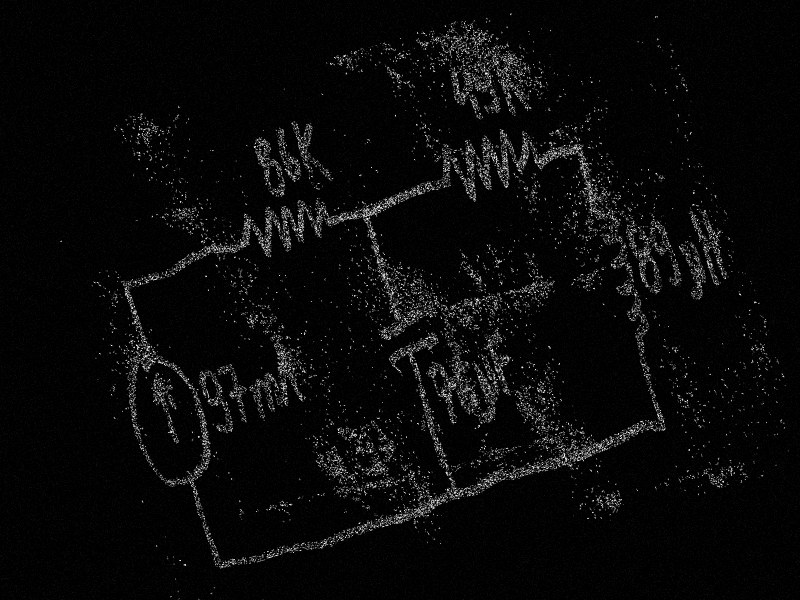 86K
43K
89μH
97mA
96μF